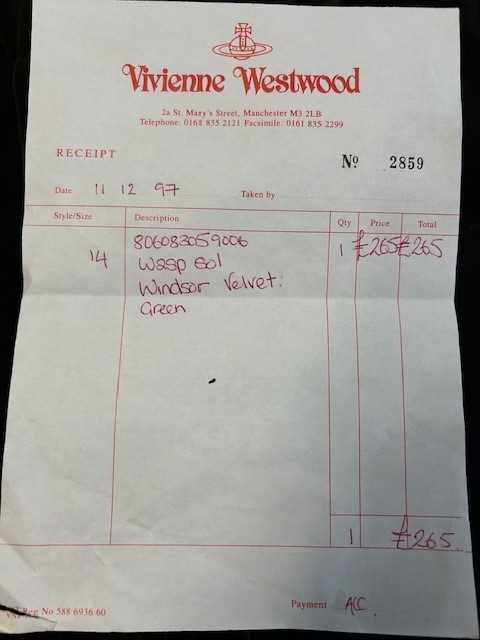 Vivienne Westwood
2a St. Mary's Street, Manchester M3 2LB
Telephone: 0161 835 2121 Facsimile: 0161 835 2299
RECEIPT
Nº 2859
Date 11 12 97 Taken by
Style/Size Description Qty Price Total
806083059006 1 £265 £265
14 Wasp Gol
Windsor Velvet:
Green
1 £265
Reg No 588 6936 60
Payment ACC.